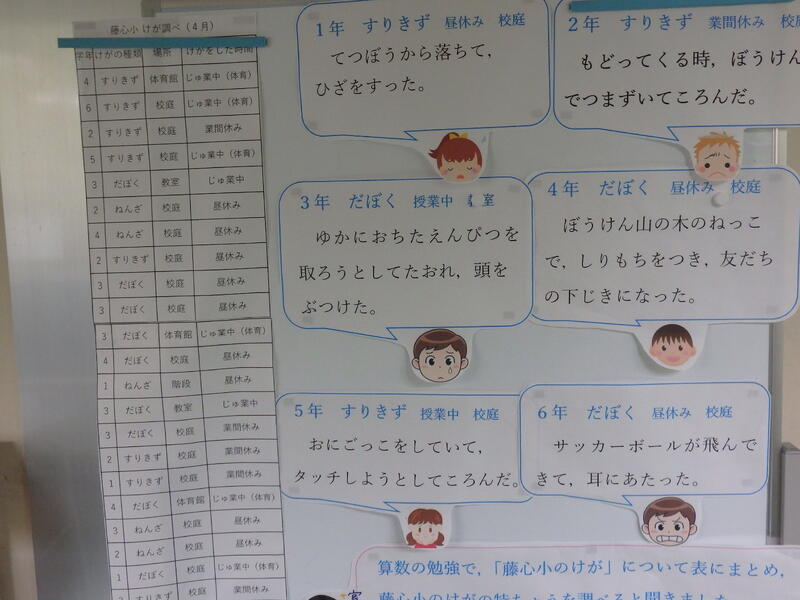 藤心小 けが調べ（4月）
学年 けがの種類 場所 けがをした時間
4 すりきず 体育館 じゅ業中（体育）
6 すりきず 校庭 じゅ業中（体育）
2 すりきず 校庭 業間休み
5 すりきず 校庭 じゅ業中（体育）
3 だぼく 教室 じゅ業中
2 ねんざ 校庭 昼休み
4 ねんざ 校庭 昼休み
2 すりきず 校庭 昼休み
3 だぼく 校庭 昼休み
3 だぼく 校庭 昼休み
3 だぼく 体育館 じゅ業中（体育）
4 だぼく 校庭 昼休み
1 ねんざ 階段 昼休み
3 だぼく 教室 じゅ業中
3 だぼく 校庭 業間休み
2 すりきず 校庭 業間休み
1 すりきず 校庭 業間休み
4 だぼく 体育館 じゅ業中（体育）
3 ねんざ 校庭 昼休み
2 ねんざ 校庭 昼休み
1 だぼく 校庭 じゅ業中（体育）
3 すりきず 校庭 業間休み
1年 すりきず 昼休み 校庭
てつぼうから落ちて，
ひざをすった。
2年 すりきず 業間休み 校
もどってくる時，ぼうけん
でつまずいてころんだ。
3年 だぼく 授業中 室
ゆかにおちたえんぴつを
取ろうとしてたおれ，頭を
ぶつけた。
4年 だぼく 昼休み 校庭
ぼうけん山の木のねっこ
で，しりもちをつき，友だち
の下じきになった。
5年 すりきず 授業中 校庭
おにごっこをしていて，
タッチしようとしてころんだ。
6年 だぼく 昼休み 校庭
サッカーボールが飛んで
きて，耳にあたった。
算数の勉強で，「藤心小のけが」について表にまとめ，
藤心小のけがの特ちょうを調べると聞きました